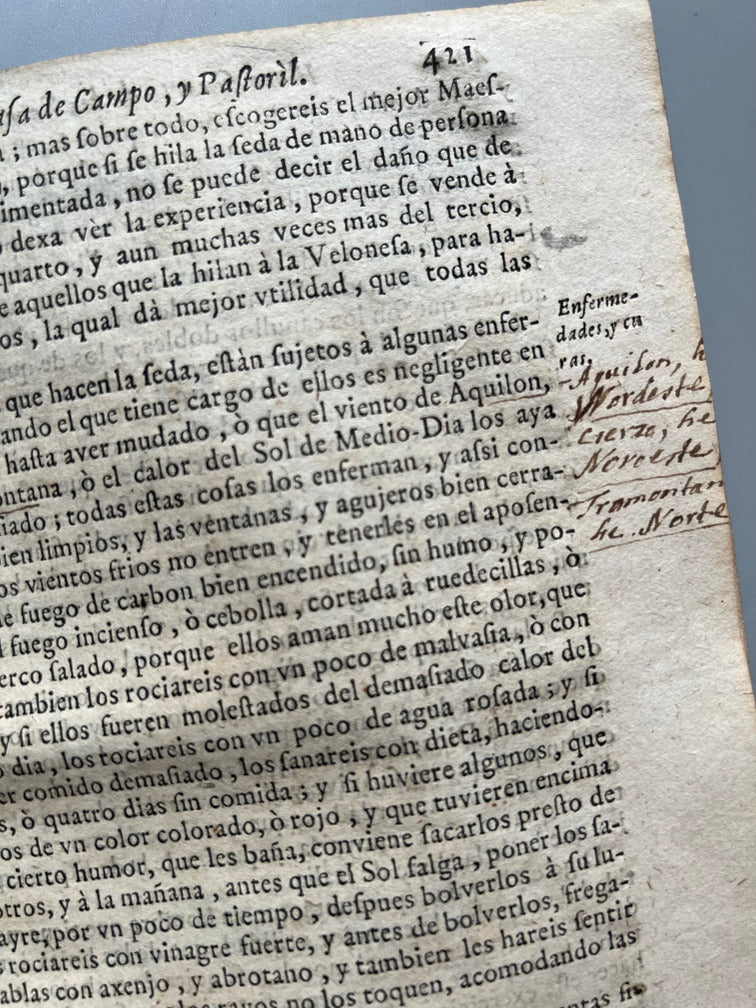 de Campo, y Paſtoril. 421
; mas ſobre todo, eſcogereis el mejor Maeſ-
, porque ſi ſe hila la ſeda de mano de perſona
imentada, no ſe puede decir el daño que de
dexa vèr la experiencia, porque ſe vende à
quarto, y aun muchas veces mas del tercio,
e aquellos que la hilan à la Veloneſa, para ha-
os, la qual dà mejor vtilidad, que todas las
que hacen la ſeda, eſtàn ſujetos à algunas enfer-
ando el que tiene cargo de ellos es negligente en
haſta aver mudado, ò que el viento de Aquilon,
ontana, ò el calor del Sol de Medio-Dia los aya
iado; todas eſtas coſas los enferman, y aſsi con-
ien limpios, y las ventanas, y agujeros bien cerra-
os vientos frios no entren, y tenerles en el apoſen-
e fuego de carbon bien encendido, ſin humo, y po-
l fuego incienſo, ò cebolla, cortada à ruedecillas, ò
erco ſalado, porque ellos aman mucho eſte olor, que
tambien los rociareis con vn poco de malvaſia, ò con
y ſi ellos fueren moleſtados del demaſiado calor del
dia, los rociareis con vn poco de agua roſada; y ſi
er comido demaſiado, los ſanareis con dieta, haciendo-
s, ò quatro dias ſin comida; y ſi huviere algunos, que
os de vn color colorado, ò rojo, y que tuvieren encima
cierto humor, que les baña, conviene ſacarlos preſto de
otros, y à la mañana, antes que el Sol ſalga, poner los ſa-
ayre, por vn poco de tiempo, deſpues bolverlos à ſu lu-
rociareis con vinagre fuerte, y antes de bolverlos, frega-
ablas con axenjo, y abrotano, y tambien les hareis ſentir
rayos no los toquen, acomodando las
Enferme-
dades, y cu
ras.
Aquilon, h
Nordeste,
cierzo, he
Noroeste,
Tramontan
he. Norte